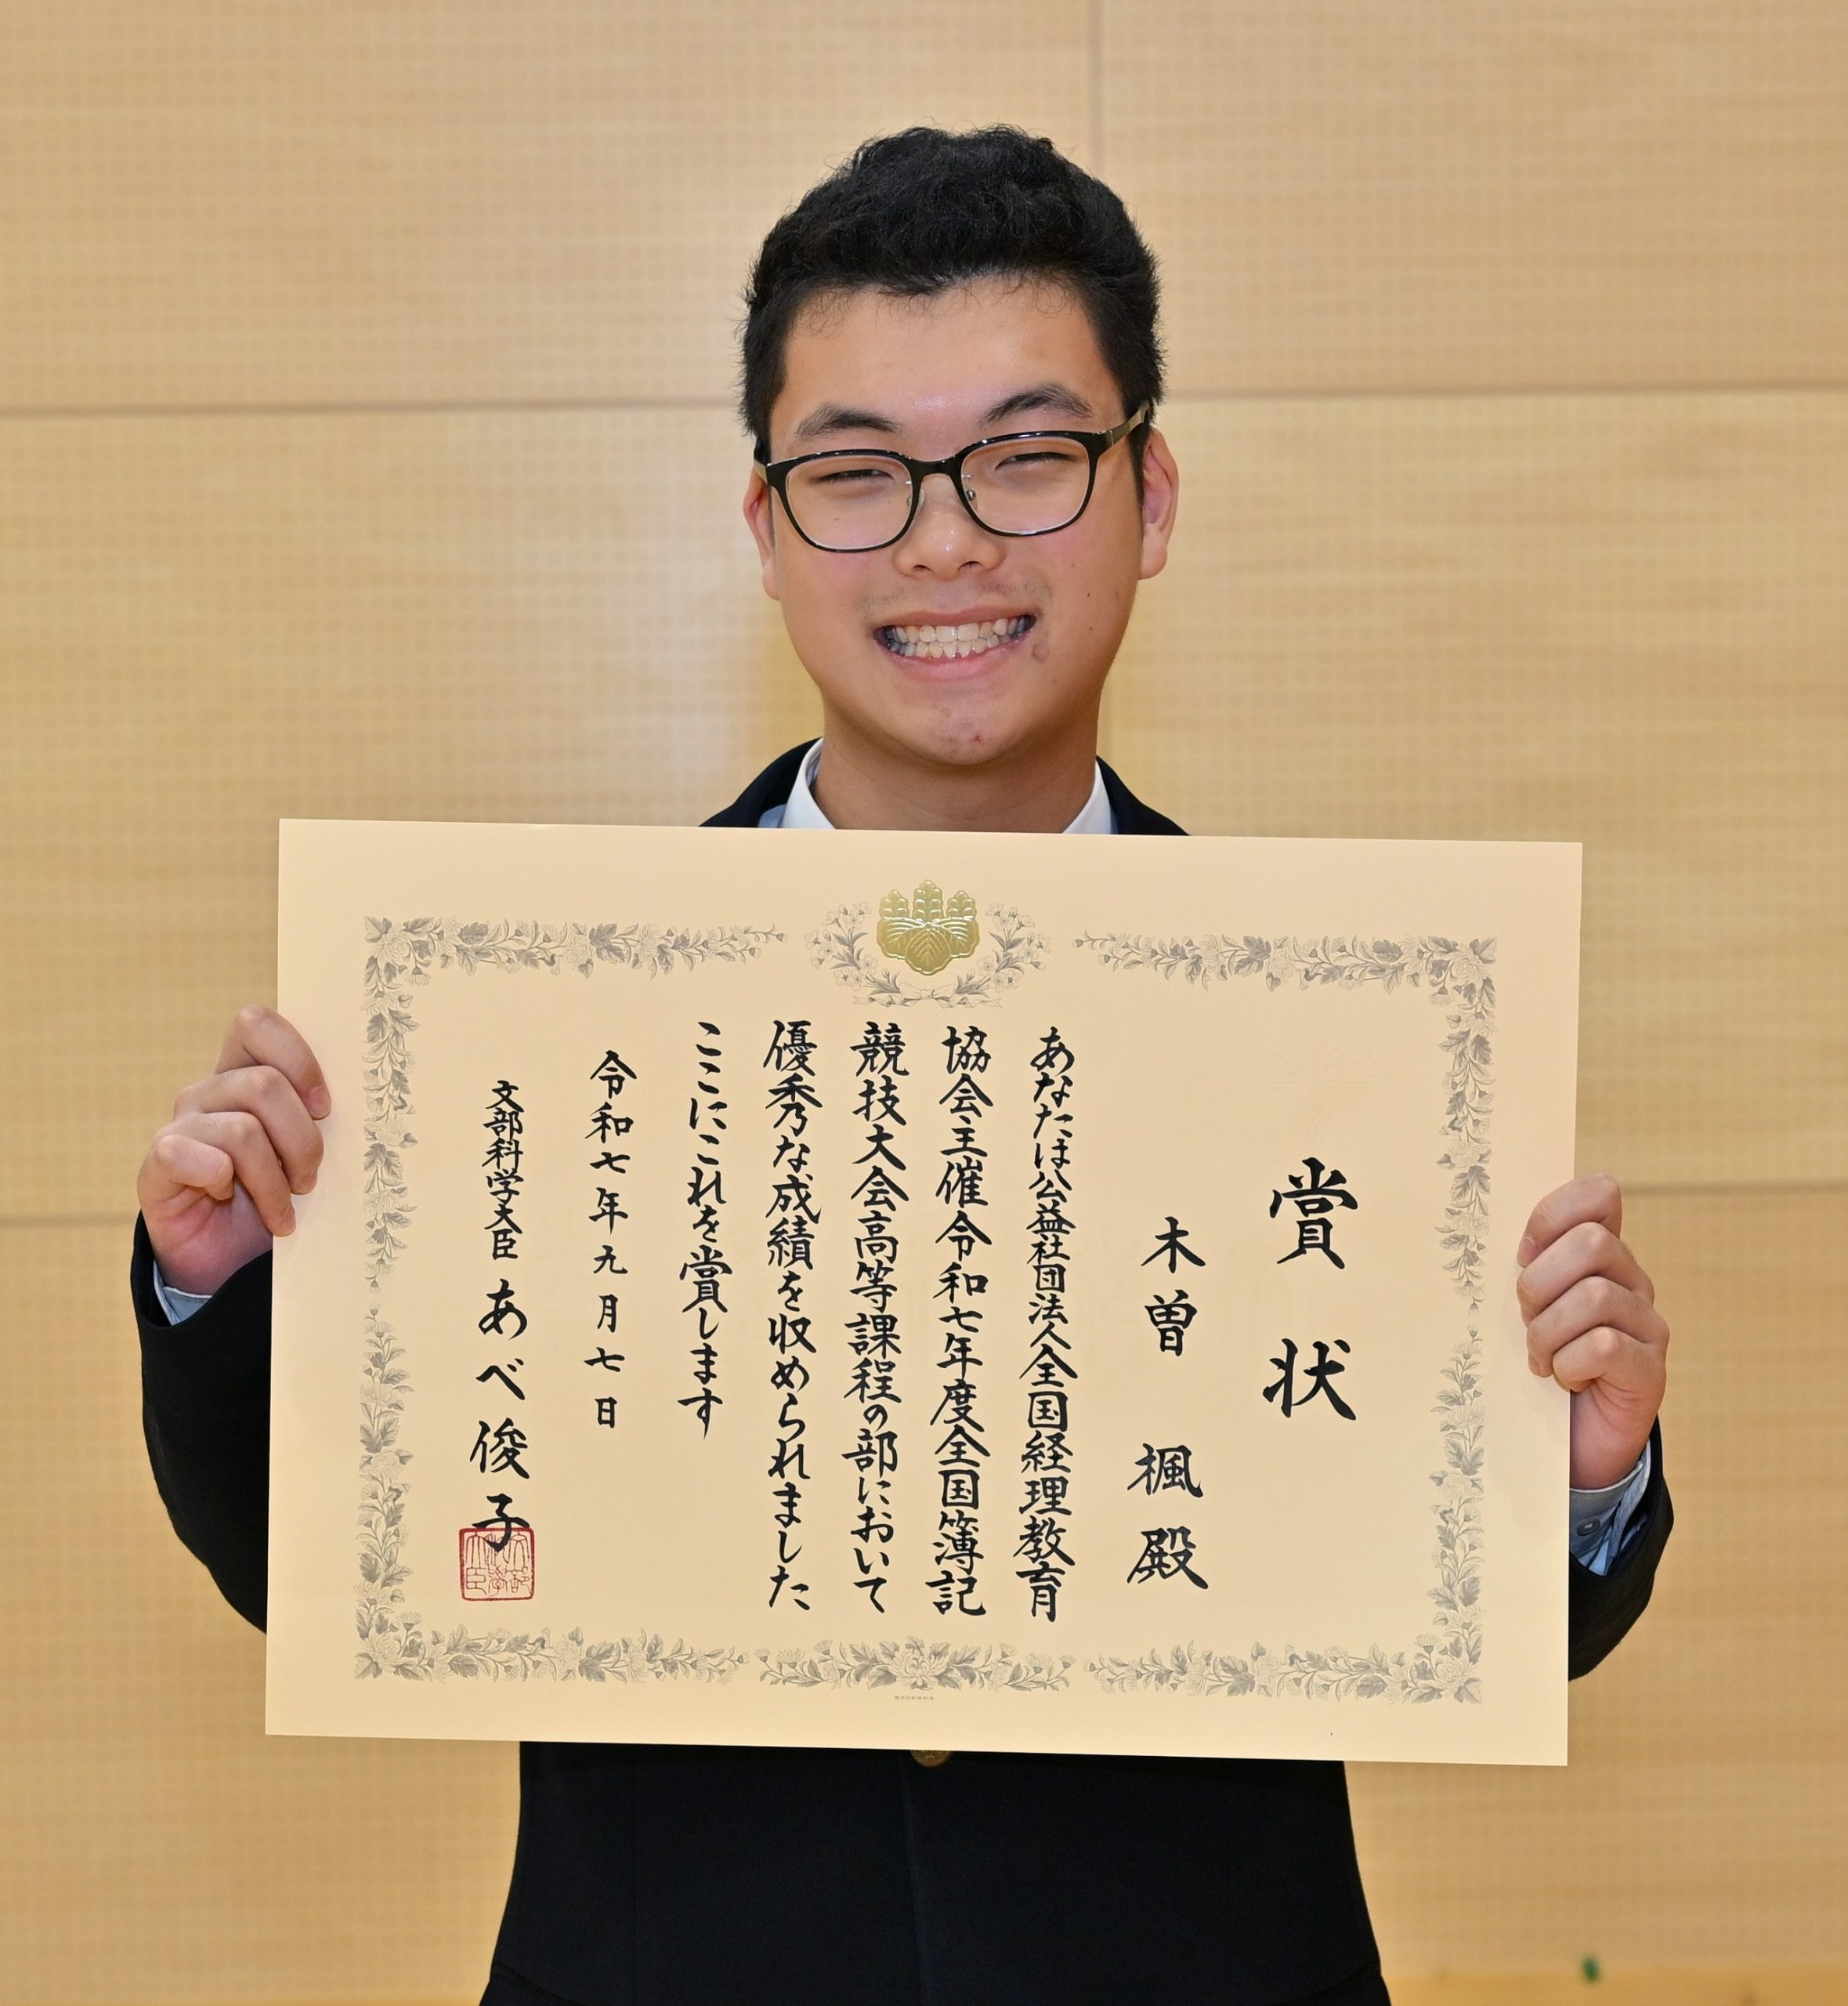 賞状
木曽 楓 殿
あなたは公益社団法人全国経理教育
協会主催令和七年度全国簿記
競技大会高等課程の部において
優秀な成績を収められました
ここにこれを賞します
令和七年九月七日
文部科学大臣 あべ俊子